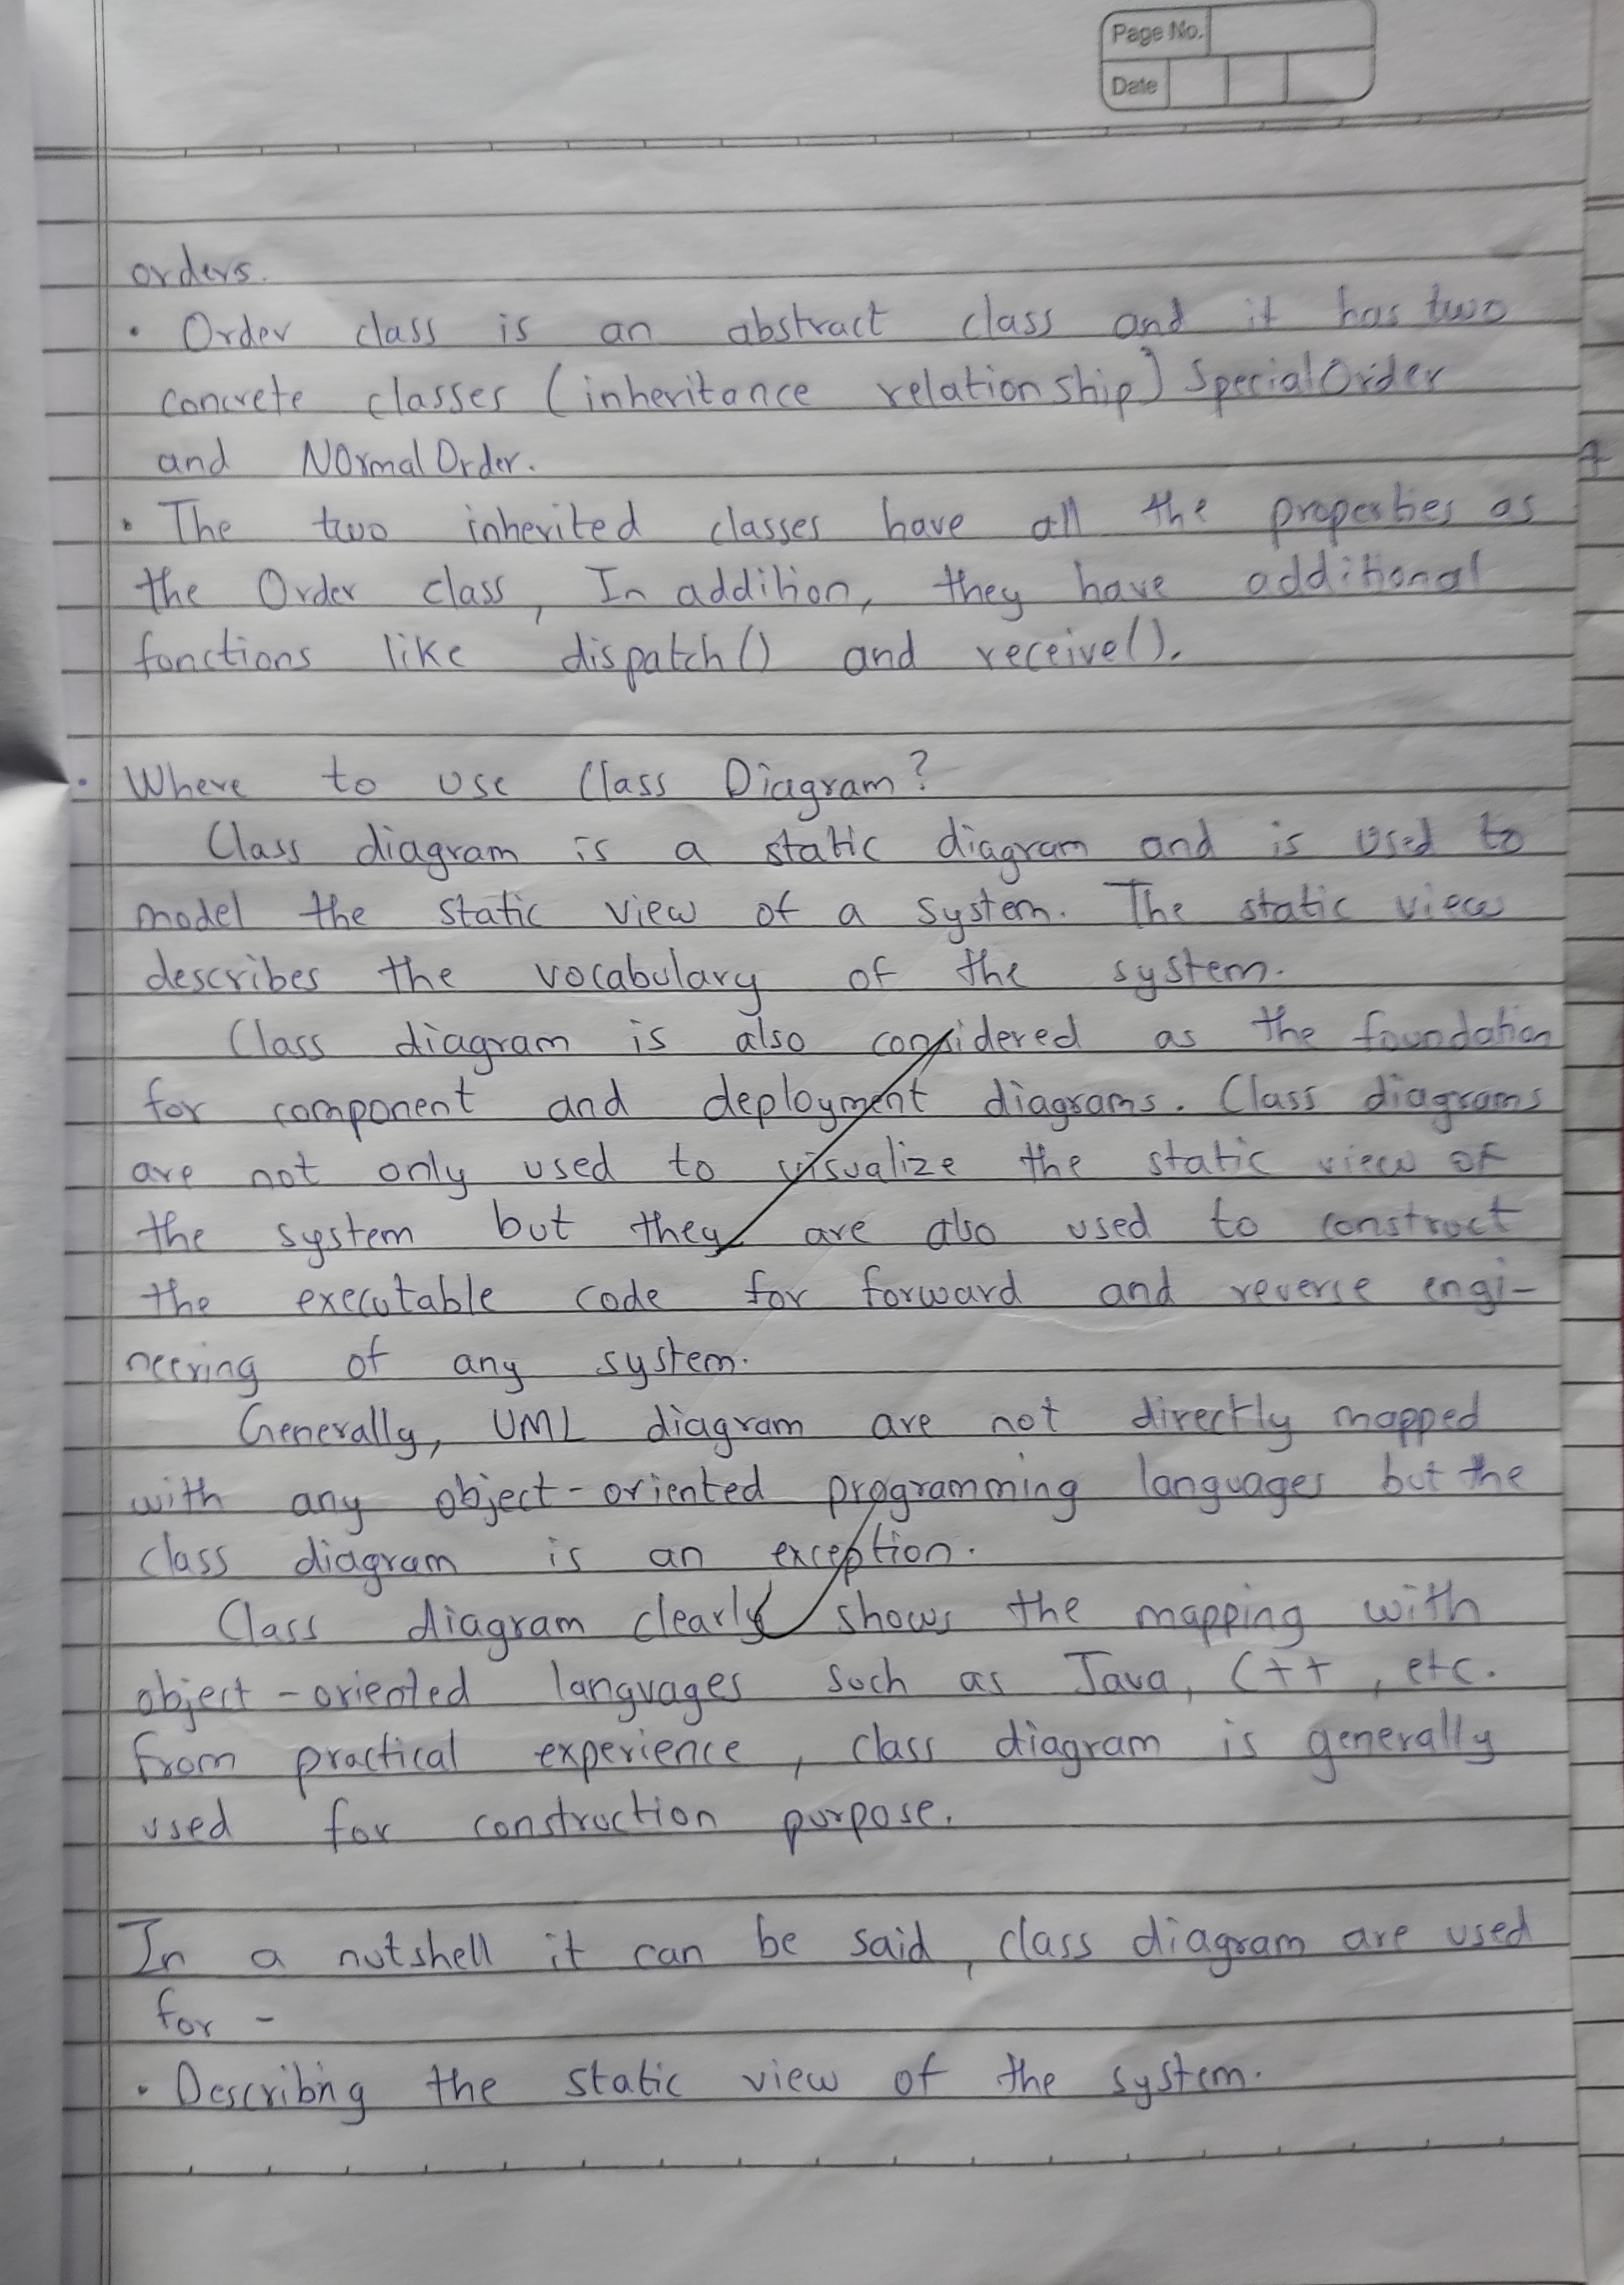 Page No.
Date
orders.
• Order class is an abstract class and it has two
concrete classes (inheritance relationship) SpecialOrder
and NOrmalOrder.
• The two inherited classes have all the properties as
the Order class, In addition, they have additional
fonctions like dispatch() and receive().
• Where to use Class Diagram?
Class diagram is a static diagram and is used to
model the static view of a system. The static view
describes the vocabulary of the system.
Class diagram is also considered as the foundation
for component and deployment diagrams. Class diagrams
are not only used to visualize the static view of
the system but they are also used to construct
the executable code for forward and reverse engi-
neering of any system.
Generally, UML diagram are not directly mapped
with any object-oriented programming languages but the
class diagram is an exception.
Class diagram clearly shows the mapping with
object-oriented languages such as Java, C++, etc.
From practical experience, class diagram is generally
used for construction purpose.
In a nutshell it can be said, class diagram are used
for -
• Describing the static view of the system.